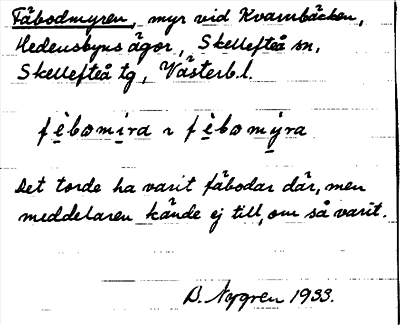 Fäbodmyren, myr vid Kvarnbäcken,
Hedensbyns ägor, Skellefteå sn,
Skellefteå tg, Västerb.l.
fèbomira ɿ fèbomýra
Det torde ha varit fäbodar där, men
meddelaren kände ej till, om så varit.
B. Nygren 1933.